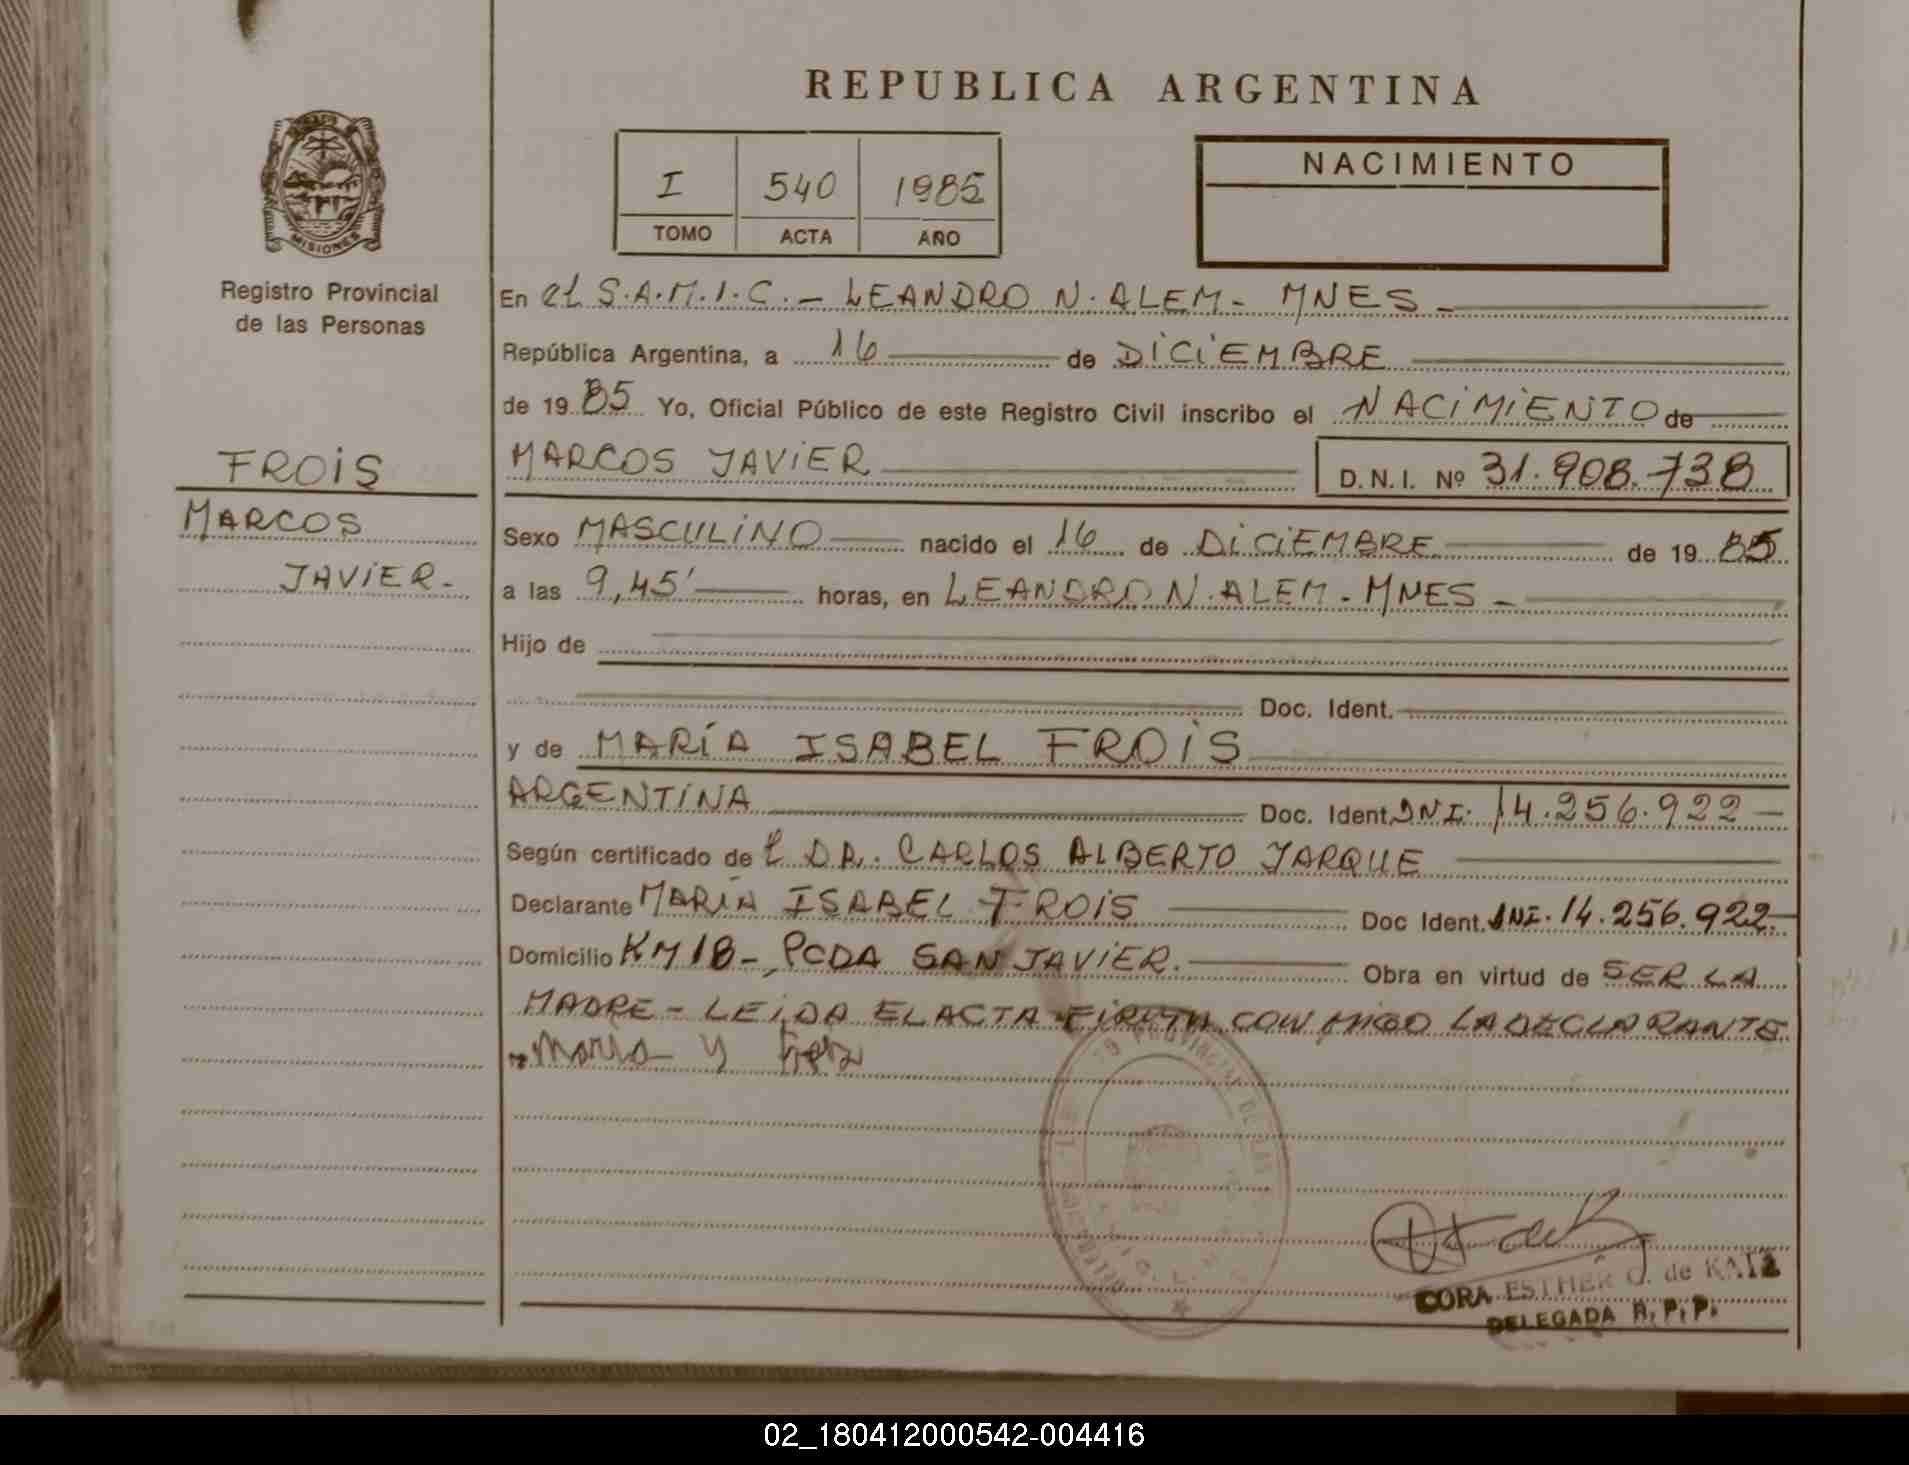 REPUBLICA ARGENTINA
MISIONES
Registro Provincial
de las Personas
I 540 1985
TOMO ACTA AÑO
NACIMIENTO
En el S.A.M.I.C. - LEANDRO N. ALEM - MNES -
República Argentina, a 16 de DICIEMBRE
de 1985 Yo, Oficial Público de este Registro Civil inscribo el NACIMIENTO de
MARCOS JAVIER D.N.I. Nº 31.908.738
FROIS
MARCOS
JAVIER.-
Sexo MASCULINO nacido el 16 de DICIEMBRE de 1985
a las 9,45' horas, en LEANDRO N. ALEM - MNES -
Hijo de
Doc. Ident.
y de MARÍA ISABEL FROIS
ARGENTINA Doc. Ident. DNI: 14.256.922 -
Según certificado del DR. CARLOS ALBERTO JARQUE
Declarante MARÍA ISABEL FROIS Doc Ident. DNI. 14.256.922.-
Domicilio KM 18 - PCDA SAN JAVIER. Obra en virtud de SER LA
MADRE - LEIDA EL ACTA FIRMA CONMIGO LA DECLARANTE
Maria y
CORA ESTHER O. de KATZ
DELEGADA R.P.P.
02_180412000542-004416